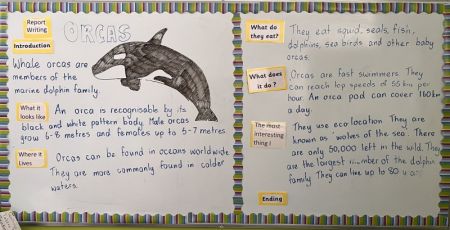 Report
Writing
ORCAS
Introduction
Whale orcas are
members of the
marine dolphin family.
What it
looks like
An orca is recognisable by its
black and white pattern body. Male orcas
grow 6-8 metres and females up to 5-7 metres.
Where it
Lives
Orcas can be found in oceans worldwide
They are more commonly found in colder
waters.
What do
they eat?
They eat squid, seals, fish,
dolphins, sea birds and other baby
orcas.
What does
it do?
Orcas are fast swimmers. They
can reach top speeds of 55 km per
hour. An orca pod can cover 160km
a day.
The most
interesting
thing!
They use eco location. They are
known as 'wolves of the sea'. There
are only 50,000 left in the wild. They
are the largest number of the dolphin
family. They can live up to 80
Ending